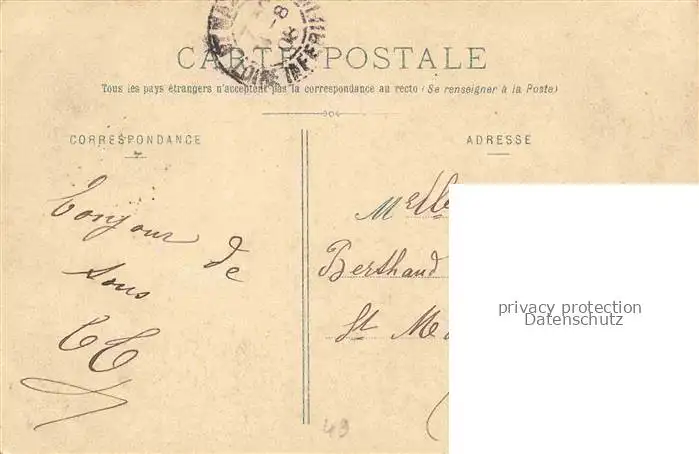 CARTE POSTALE
Tous les pays étrangers n'acceptent pas la correspondance au recto (Se renseigner à la Poste)
CORRESPONDANCE
ADRESSE
Bonjour de
tous
Melle
Berthaud
St M
49
LOIRE INFERIE
8-8
08
privacy protection
Datenschutz